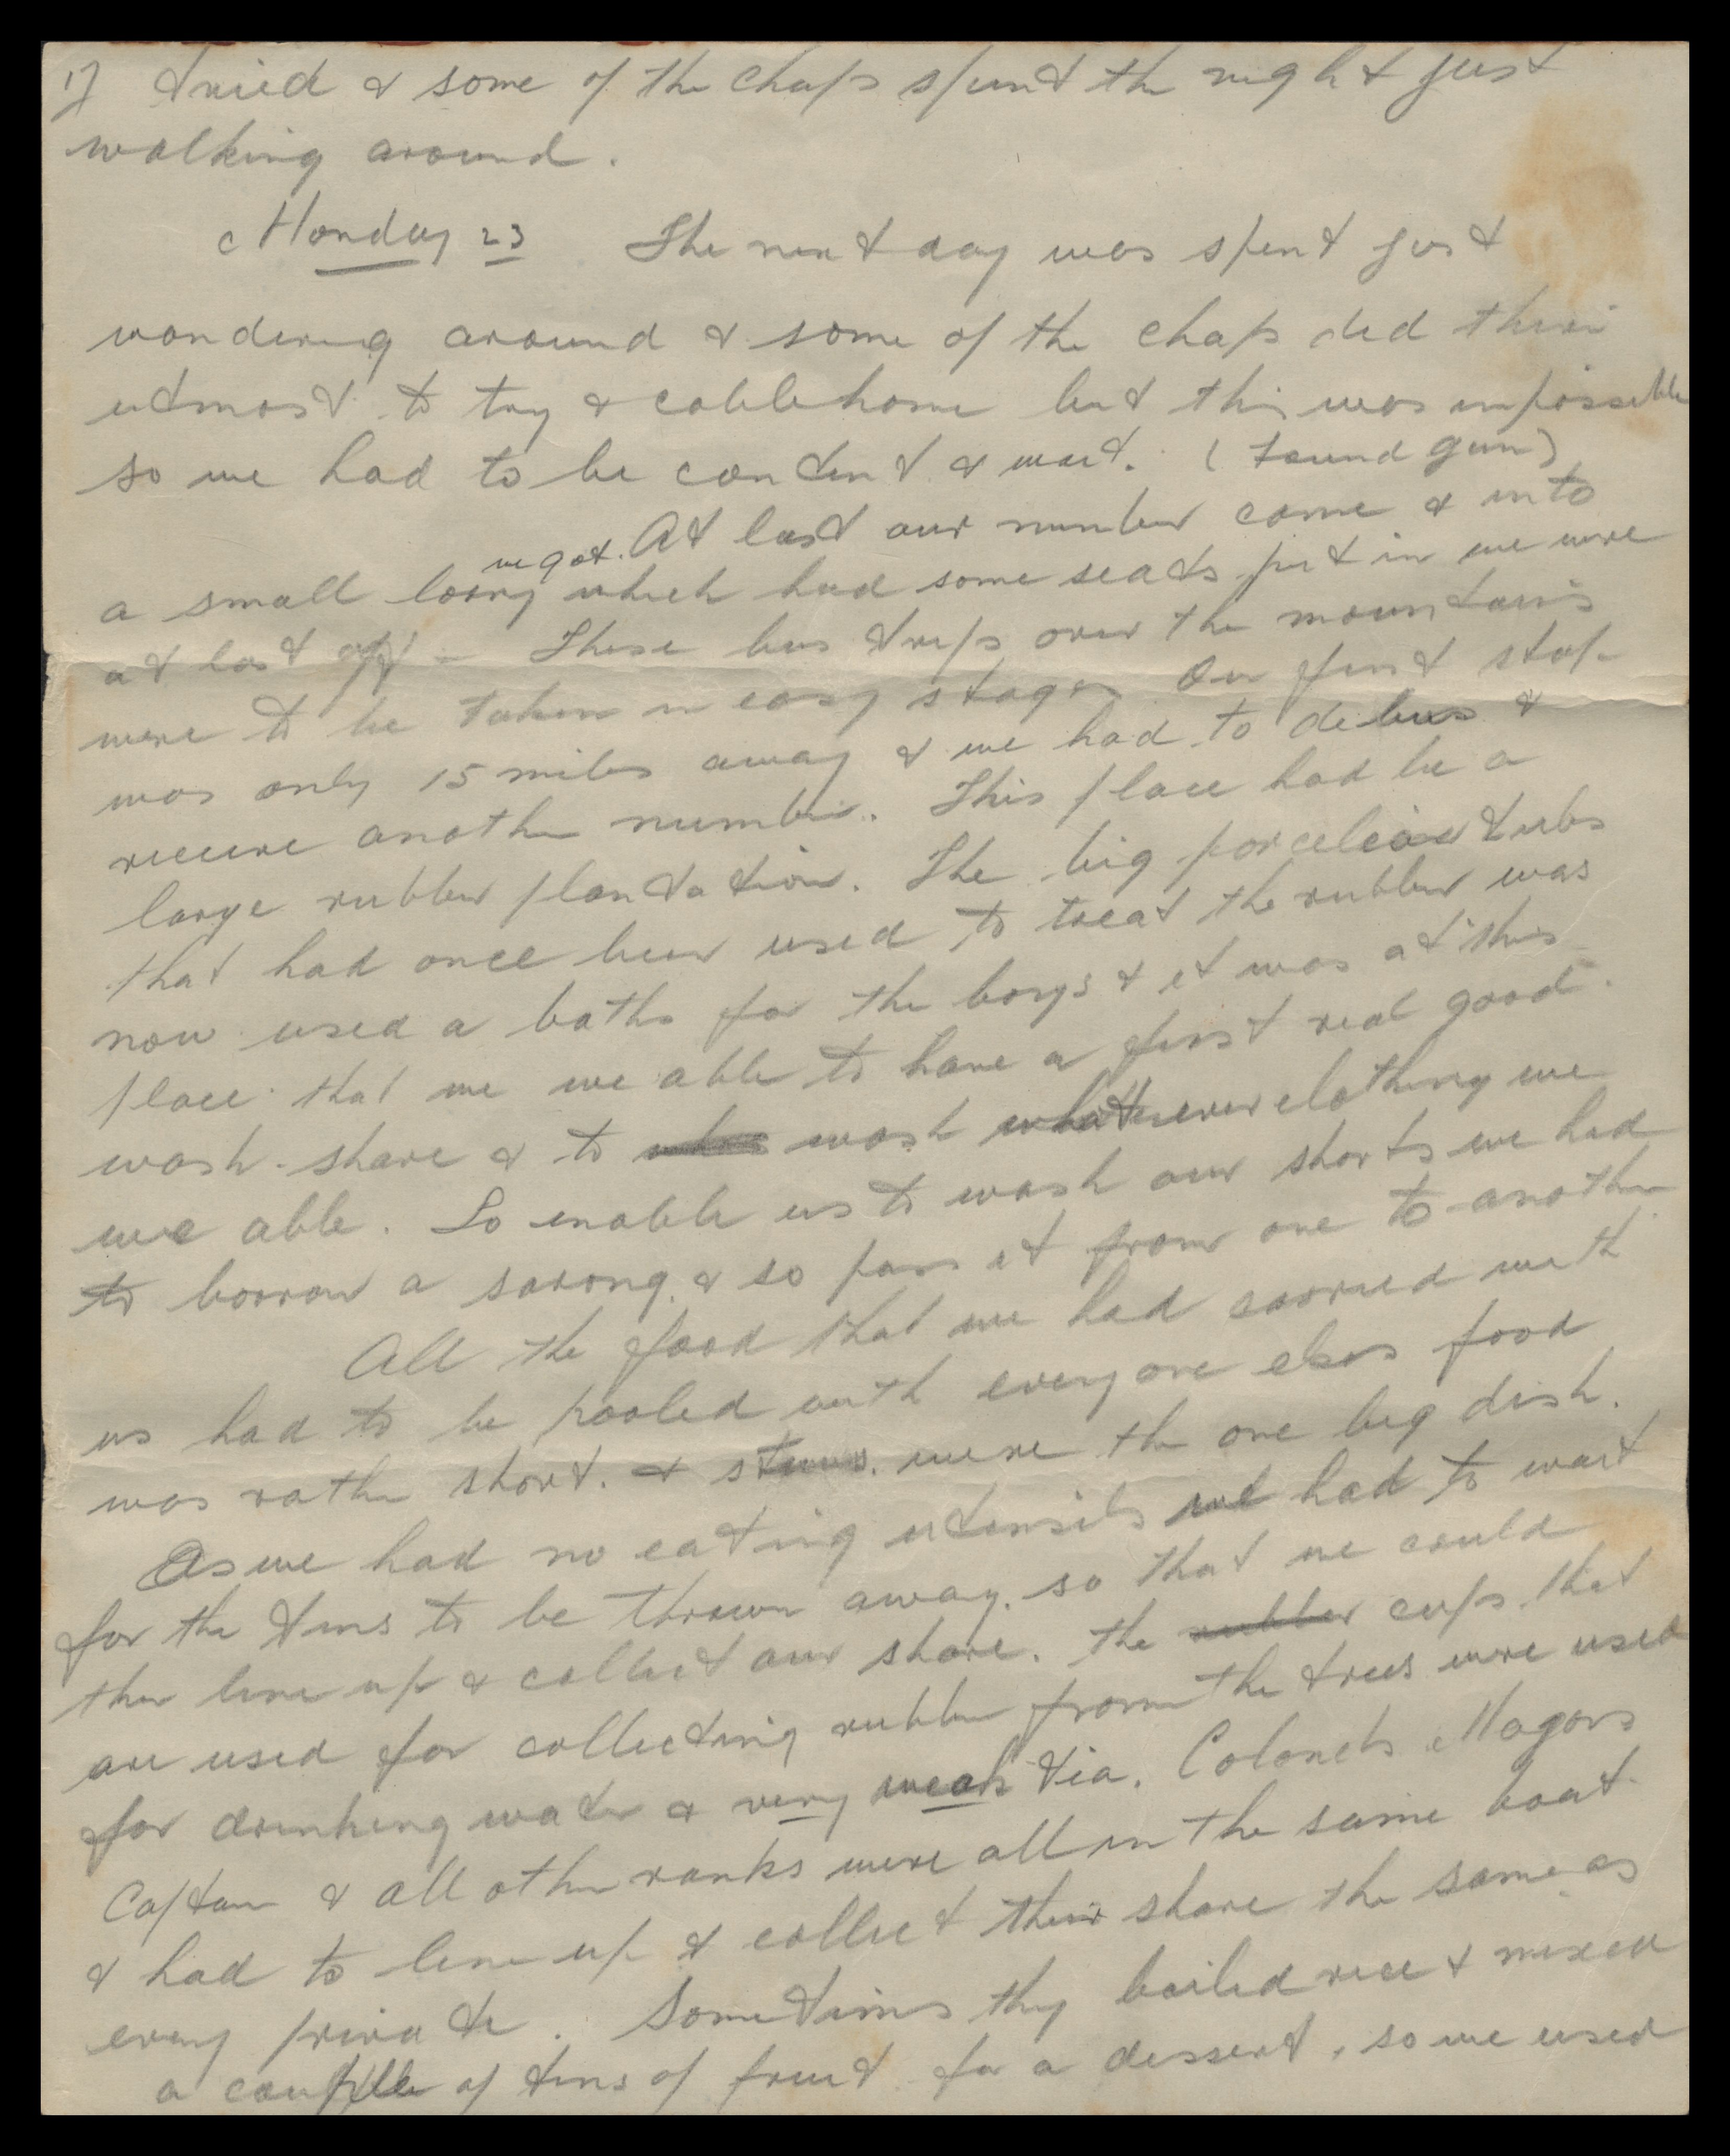 17 tried & some of the chaps spent the night just
walking around.
Monday 23 The next day was spent just
wondering around & some of the chaps did their
utmost to try & cable home but this was impossible
so we had to be content & wait. (Found gun)
At last our number came & into
we got.
a small lorry which had some seats put in we were
at last off - These bus trips over the mountains
were to be taken in easy stages Our first stop
was only 15 miles away & we had to debus &
receive another number. This place had be a
large rubber plantation. The big porcelain tubs
that had once been used to treat the rubber was
now used a baths for the boys & it was at this
place that we we able to have a first real good
wash - shave & to wash whatever clothing we
we able. To enable us to wash our shorts we had
to borrow a sarong & so pass it from one to another
All the food that we had carried with
us had to be pooled with everyone elses food
was rather short. & stews. were the one big dish.
As we had no eating utensils we had to wait
for the tins to be thrown away. so that we could
then line up & collect our share. The rubber cups that
are used for collecting rubber from the trees were used
for drinking water & very weak tea. Colonels Magors
Captain & all other ranks were all in the same boat
& had to line up & collect their share the same as
every private. Sometimes they boiled rice & mixed
a couple of tins of fruit for a dessert, so we used